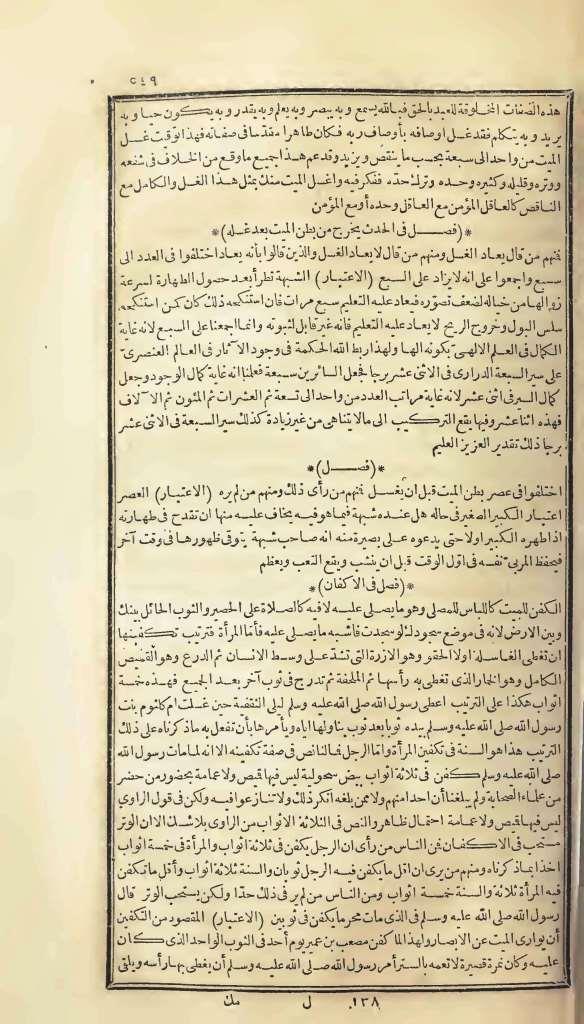 ٢٤٩
هذه الصفات المخلوقة للعبد بالحق فبالله يسمع وبه يبصر وبه يعلم وبه يقدر وبه يكون حيا وبه
يريد وبه يتكلم فقد غسل أوصافه بأوصاف ربه فكان طاهرا مقدسا فى صفاته فهذا توقت غسل
الميت من واحد الى سبعة بحسب ما ينقص ويزيد وقد عم هذا جميع ما وقع من الخلاف فى شفعه
ووتره وقليله وكثيره وحده وترك حده ففكر فيه واغسل الميت منك بمثل هذا الغسل والكامل مع
الناقص كالعاقل المؤمن مع العاقل وحده أو مع المؤمن
*(فصـــل فى الحدث يخرج من بطن الميت بعد غسله)*
فمنهم من قال يعاد الغسل ومنهم من قال لا يعاد الغسل والذين قالوا بأنه يعاد اختلفوا فى العدد الى
سبع وأجمعوا على انه لا يزاد على السبع (الاعتبار) الشبهة تطرأ بعد حصول الطهارة لسرعة
زوالها من خياله لضعف تصوّره فيعاد عليه التعليم سبع مرات فان استنكحه ذلك كان كمن استنكحه
سلس البول وخروج الريح لا يعاد عليه التعليم فانه غير قابل لثبوته وانما اجمعنا على السبع لانه غاية
الكمال فى العلم الالهىّ بكونه الها ولهذا ربط الله الحكمة فى وجود الآثار فى العالم العنصرىّ
على سير السبعة الدرارى فى الاثنى عشر برجا فجعل السائرين سبعة فعلمنا انه غاية كمال الوجود وجعل
كمال السير فى اثنى عشر لانه غاية مراتب العدد من واحد الى تسعة ثم العشرات ثم المئون ثم الآلاف
فهذه اثنا عشر وفيها يقع التركيب الى ما لا يتناهى من غير زيادة كذلك سير السبعة فى الاثنى عشر
برجا ذلك تقدير العزيز العليم
*(فصـــل)*
اختلفوا فى عصر بطن الميت قبل ان يُغسل فمنهم من رأى ذلك ومنهم من لم يره (الاعتبار) العصر
اعتبار الكبير الصغير فى حاله هل عنده شبهة فيما هو فيه يخاف عليه منها ان تقدح فى طهارته
اذا طهره الكبير أولا حتى يدعوه على بصيرة منه انه صاحب شبهة يتوقى ظهورها فى وقت آخر
فيحفظ المربىّ نفسه فى اوّل الوقت قبل ان ينشب ويقع التعب ويعظم
*(فصل فى الاكفان)*
الكفن للميت كاللباس للمصلى وهو ما يصلى عليه لا فيه كالصلاة على الحصير والثوب الحائل بينك
وبين الارض لانه فى موضع سجودك لو سجدت فاشبه ما يصلى عليه فأمّا المرأة فترتيب تكفينها
ان تغطى الغاسلة اولا الحقو وهو الازرة التى تشدّ على وسط الانسان ثم الدرع وهو القميص
الكامل وهو الخمار الذى تغطى به رأسها ثم الملحفة ثم تدرج فى ثوب آخر بعد الجميع فهذه خمسة
اثواب هكذا على الترتيب اعطى رسول الله صلى الله عليه وسلم ليلى الثقفية حين غسلت ام كلثوم بنت
رسول الله صلى الله عليه وسلم بيده ثوبا بعد ثوب يناولها اياه ويأمرها بأن تفعل به ما ذكرناه على ذلك
الترتيب هذا هو السنة فى تكفين المرأة وامّا الرجل فما لنا نص فى صفة تكفينه الا انه لما مات رسول الله
صلى الله عليه وسلم كفن فى ثلاثة اثواب بيض سحولية ليس فيها قميص ولا عمامة بحضور من حضر
من علماء الصحابة ولم يبلغنا أن احدا منهم ولا ممن بلغه انكر ذلك ولا تنازعوا فيه ولكن فى قول الراوى
ليس فيها قميص ولا عمامة احتمال ظاهر والنص فى الثلاثة الاثواب من الراوى بلا شك الا ان الوتر
مستحب فى الاكفان فمن الناس من رأى ان الرجل يكفن فى ثلاثة اثواب والمرأة فى خمسة اثواب
اخذا بما ذكرناه ومنهم من يرى ان اقل ما يكفن فيه الرجل ثوبان والسنة ثلاثة اثواب وأقل ما تكفن
فيه المرأة ثلاثة والسنة خمسة اثواب ومن الناس من لم ير فى ذلك حدّا ولكن يستحب الوتر قال
رسول الله صلى الله عليه وسلم فى الذى مات محرما يكفن فى ثوبين (الاعتبار) المقصود من التكفين
أن يوارى الميت عن الابصار ولهذا لما كفن مصعب بن عمير يوم أحد فى الثوب الواحد الذى كان
عليه وكان نمرة قصيرة لا تعمه بالستر أمر رسول الله صلى الله عليه وسلم أن يغطى بها رأسه ويلقى
١٣٨ ل مك